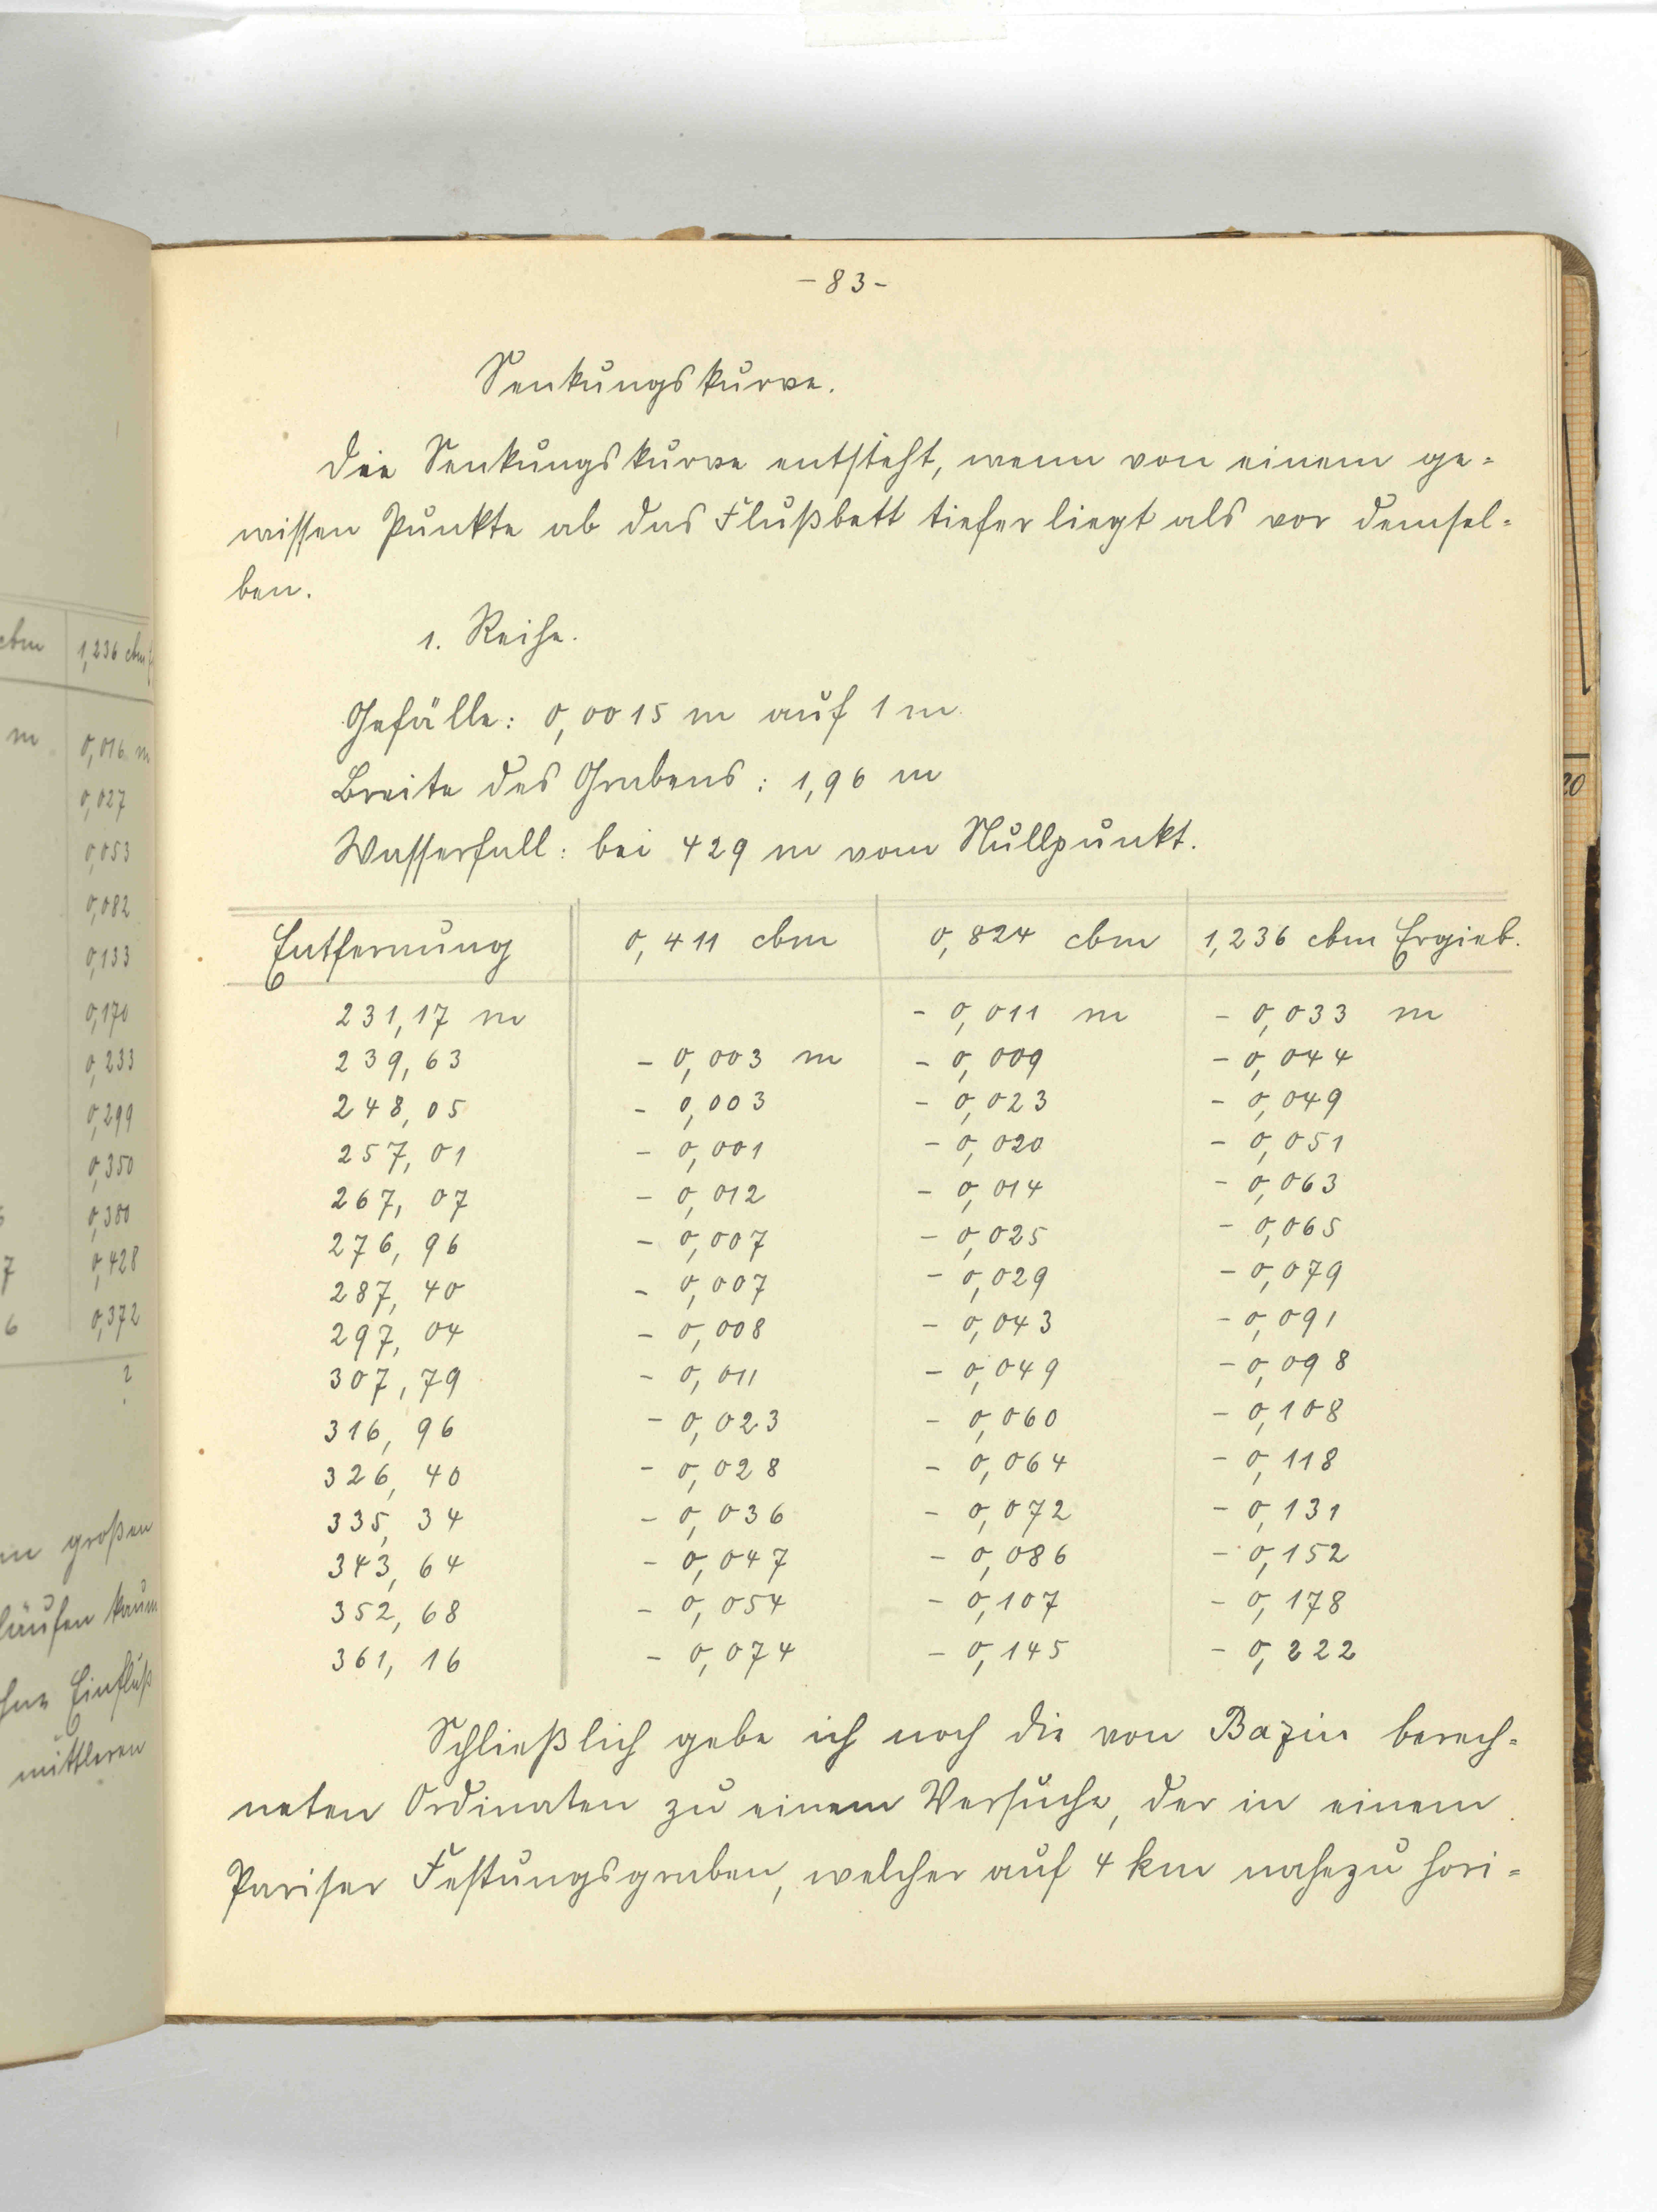 -83-
Senkungskurve.
Die Senkungskurve entsteht, wenn von einem ge=
wissen Punkte ab das Flußbett tiefer liegt als vor demsel=
ben.
1. Reihe.
Gefälle: 0,0015 m auf 1 m.
Breite des Grabens: 1,96 m
Wasserfall: bei 429 m vom Nullpunkt.
Entfernung 0,411 cbm 0,824 cbm 1,236 cbm Ergieb.
231,17 m - 0,011 m - 0,033 m
239,63 - 0,003 m - 0,009 - 0,044
248,05 - 0,003 - 0,023 - 0,049
257,01 - 0,001 - 0,020 - 0,051
267,07 - 0,012 - 0,014 - 0,063
276,96 - 0,007 - 0,025 - 0,065
287,40 - 0,007 - 0,029 - 0,079
297,04 - 0,008 - 0,043 - 0,091
307,79 - 0,011 - 0,049 - 0,098
316,96 - 0,023 - 0,060 - 0,108
326,40 - 0,028 - 0,064 - 0,118
335,34 - 0,036 - 0,072 - 0,131
343,64 - 0,047 - 0,086 - 0,152
352,68 - 0,054 - 0,107 - 0,178
361,16 - 0,074 - 0,145 - 0,222
Schließlich gebe ich noch die von Bazin berech=
neten Ordinaten zu einem Versuche, der in einem
Pariser Festungsgraben, welcher auf 4 km nahezu hori=
cbm 1,236 cbm
m 0,016 m
0,027
0,053
0,082
0,133
0,170
0,233
0,299
0,350
0,380
7 0,428
6 0,372
?
großen
läufen kaum
Einfluß
mittleren
20